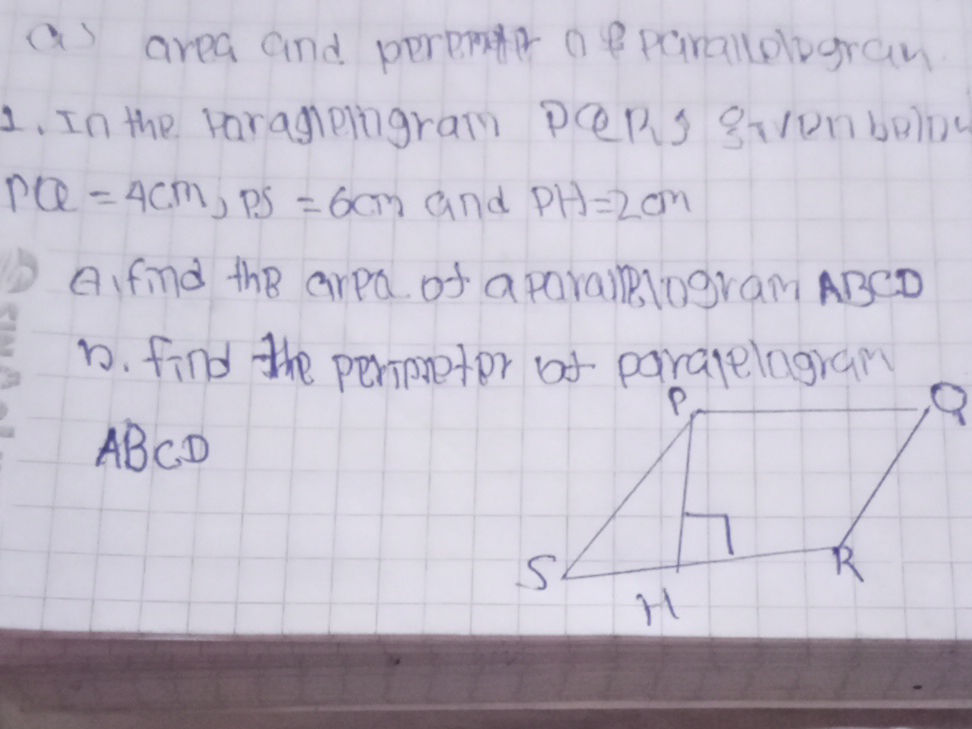 a) area and of parallelogram
1. In the PQRS given below
PQ = 4cm, PS = 6cm and PH=2cm
A, find the area of a parallelogram ABCD
b. find the perimeter of paralelagram
ABCD
P
Q
S
R
H